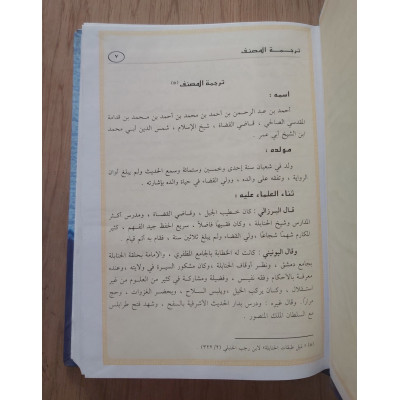 ترجمة المصنف
٧
ترجمة المصنف (*)
اسمه :
أحمد بن عبد الرحمن بن أحمد بن محمد بن أحمد بن محمد بن قدامة
المقدسي الصالحي ، قاضي القضاة ، شيخ الإسلام ، شمس الدين أبي محمد
ابن الشيخ أبي عمر .
مولده :
ولد في شعبان سنة إحدى وخمسين وستمائة وسمع الحديث ولم يبلغ أوان
الرواية ، وتفقه على والده ، وولي القضاء في حياة والده بإشارته .
ثناء العلماء عليه :
قال البرزالي : كان خطيب الجبل ، وقاضي القضاة ، ومدرس أكثر
المدارس وشيخ الحنابلة ، وكان فقيهاً فاضلاً ، سريع الحفظ جيد الفهم ، كثير
المكارم شهمًا شجاعًا، ولي القضاء ولم يبلغ ثلاثين سنة ، فقام به أتم قيام .
وقال اليونيني : كانت له الخطابة بالجامع المظفري ، والإمامة بحلقة الحنابلة
بجامع دمشق ، ونظر أوقاف الحنابلة ، وكان مشكور السيرة في ولايته ، وعنده
معرفة بالأحكام وفقه نفيس ، وفضيلة ومشاركة في كثير من العلوم من غير
استقلال ، وكان يركب الخيل ، ويلبس السلاح ، ويحضر الغزوات ، وحج
مرارًا. وقال غيره : ودرس بدار الحديث الأشرفية بالسفح ، وشهد فتح طرابلس
مع السلطان الملك المنصور .
(*) ذيل طبقات الحنابلة لابن رجب الحنبلي